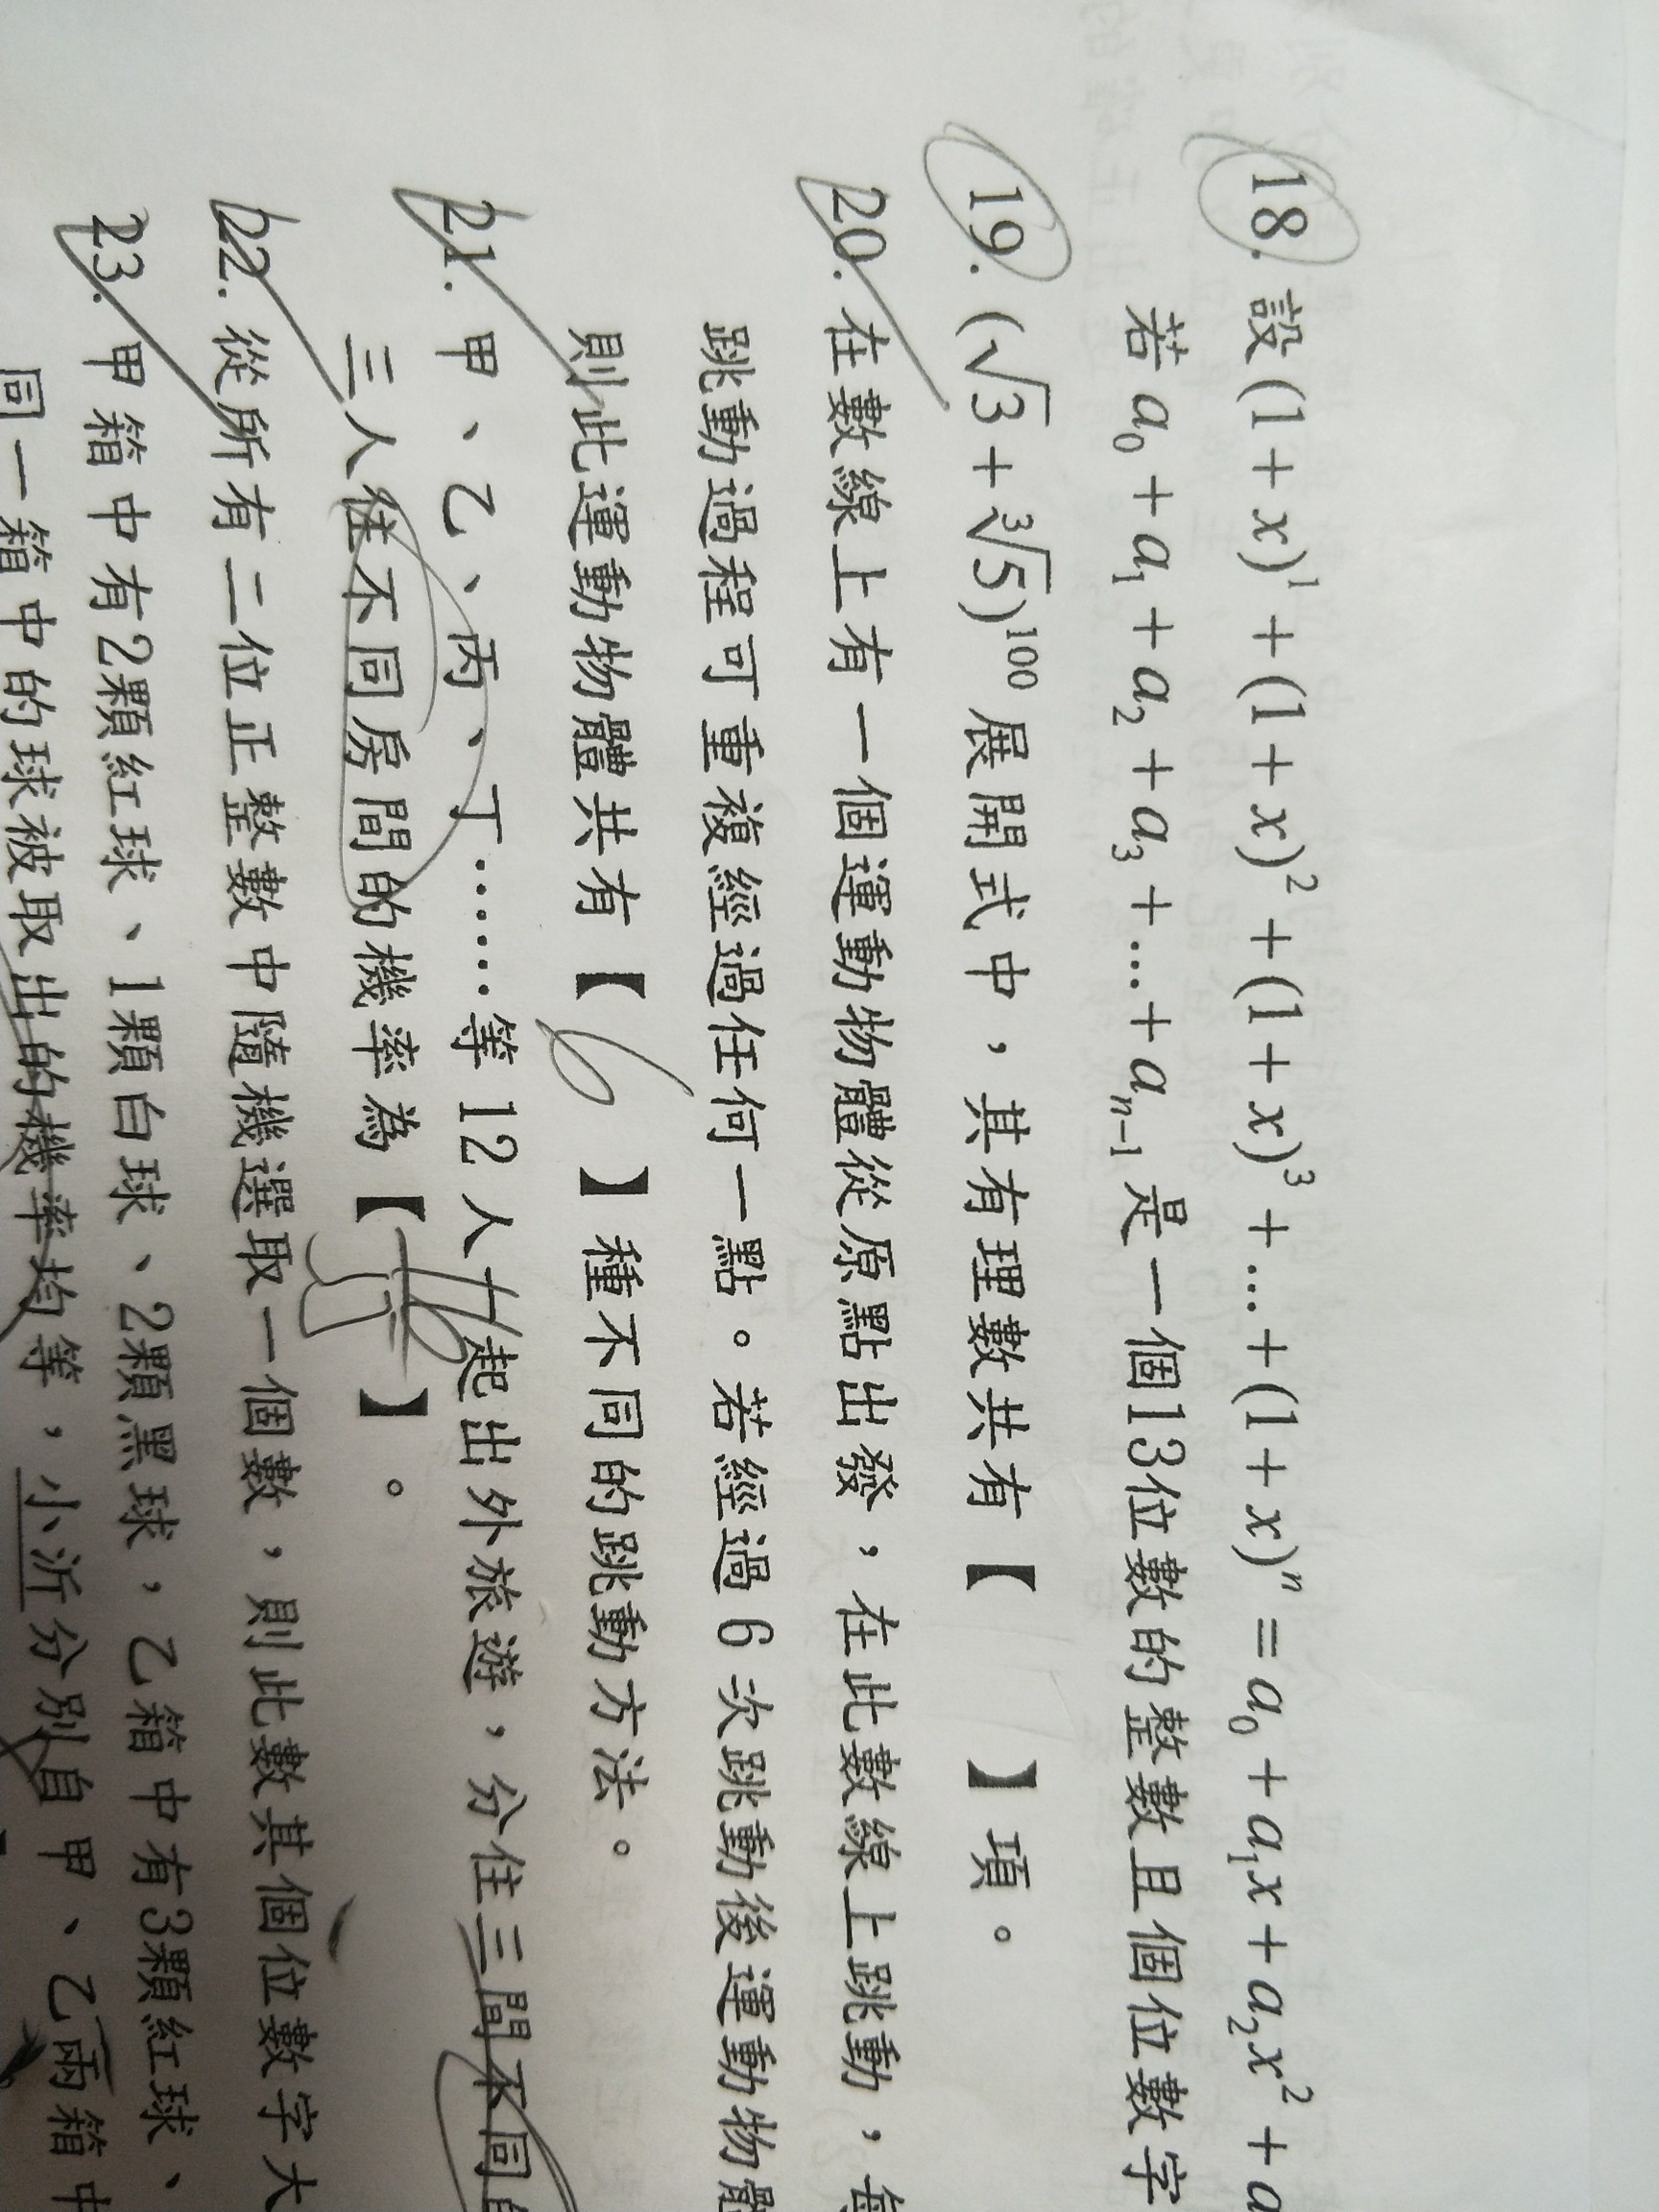 18. 設(1+x)¹+(1+x)²+(1+x)³+…+(1+x)ⁿ=a₀+a₁x+a₂x²+a
若a₀+a₁+a₂+a₃+…+aₙ₋₁是一個13位數的整數且個位數字
19. (√3+∛5)¹⁰⁰展開式中，其有理數共有【 】項。
20. 在數線上有一個運動物體從原點出發，在此數線上跳動，每
跳動過程可重複經過任何一點。若經過6次跳動後運動物體
則此運動物體共有【 6 】種不同的跳動方法。
21. 甲、乙、丙、丁……等12人一起出外旅遊，分住三間不同的
三人住不同房間的機率為【 】。
22. 從所有二位正整數中隨機選取一個數，則此數其個位數字大
23. 甲箱中有2顆紅球、1顆白球、2顆黑球，乙箱中有3顆紅球、
同一箱中的球被取出的機率均等，小沂分別自甲、乙兩箱中